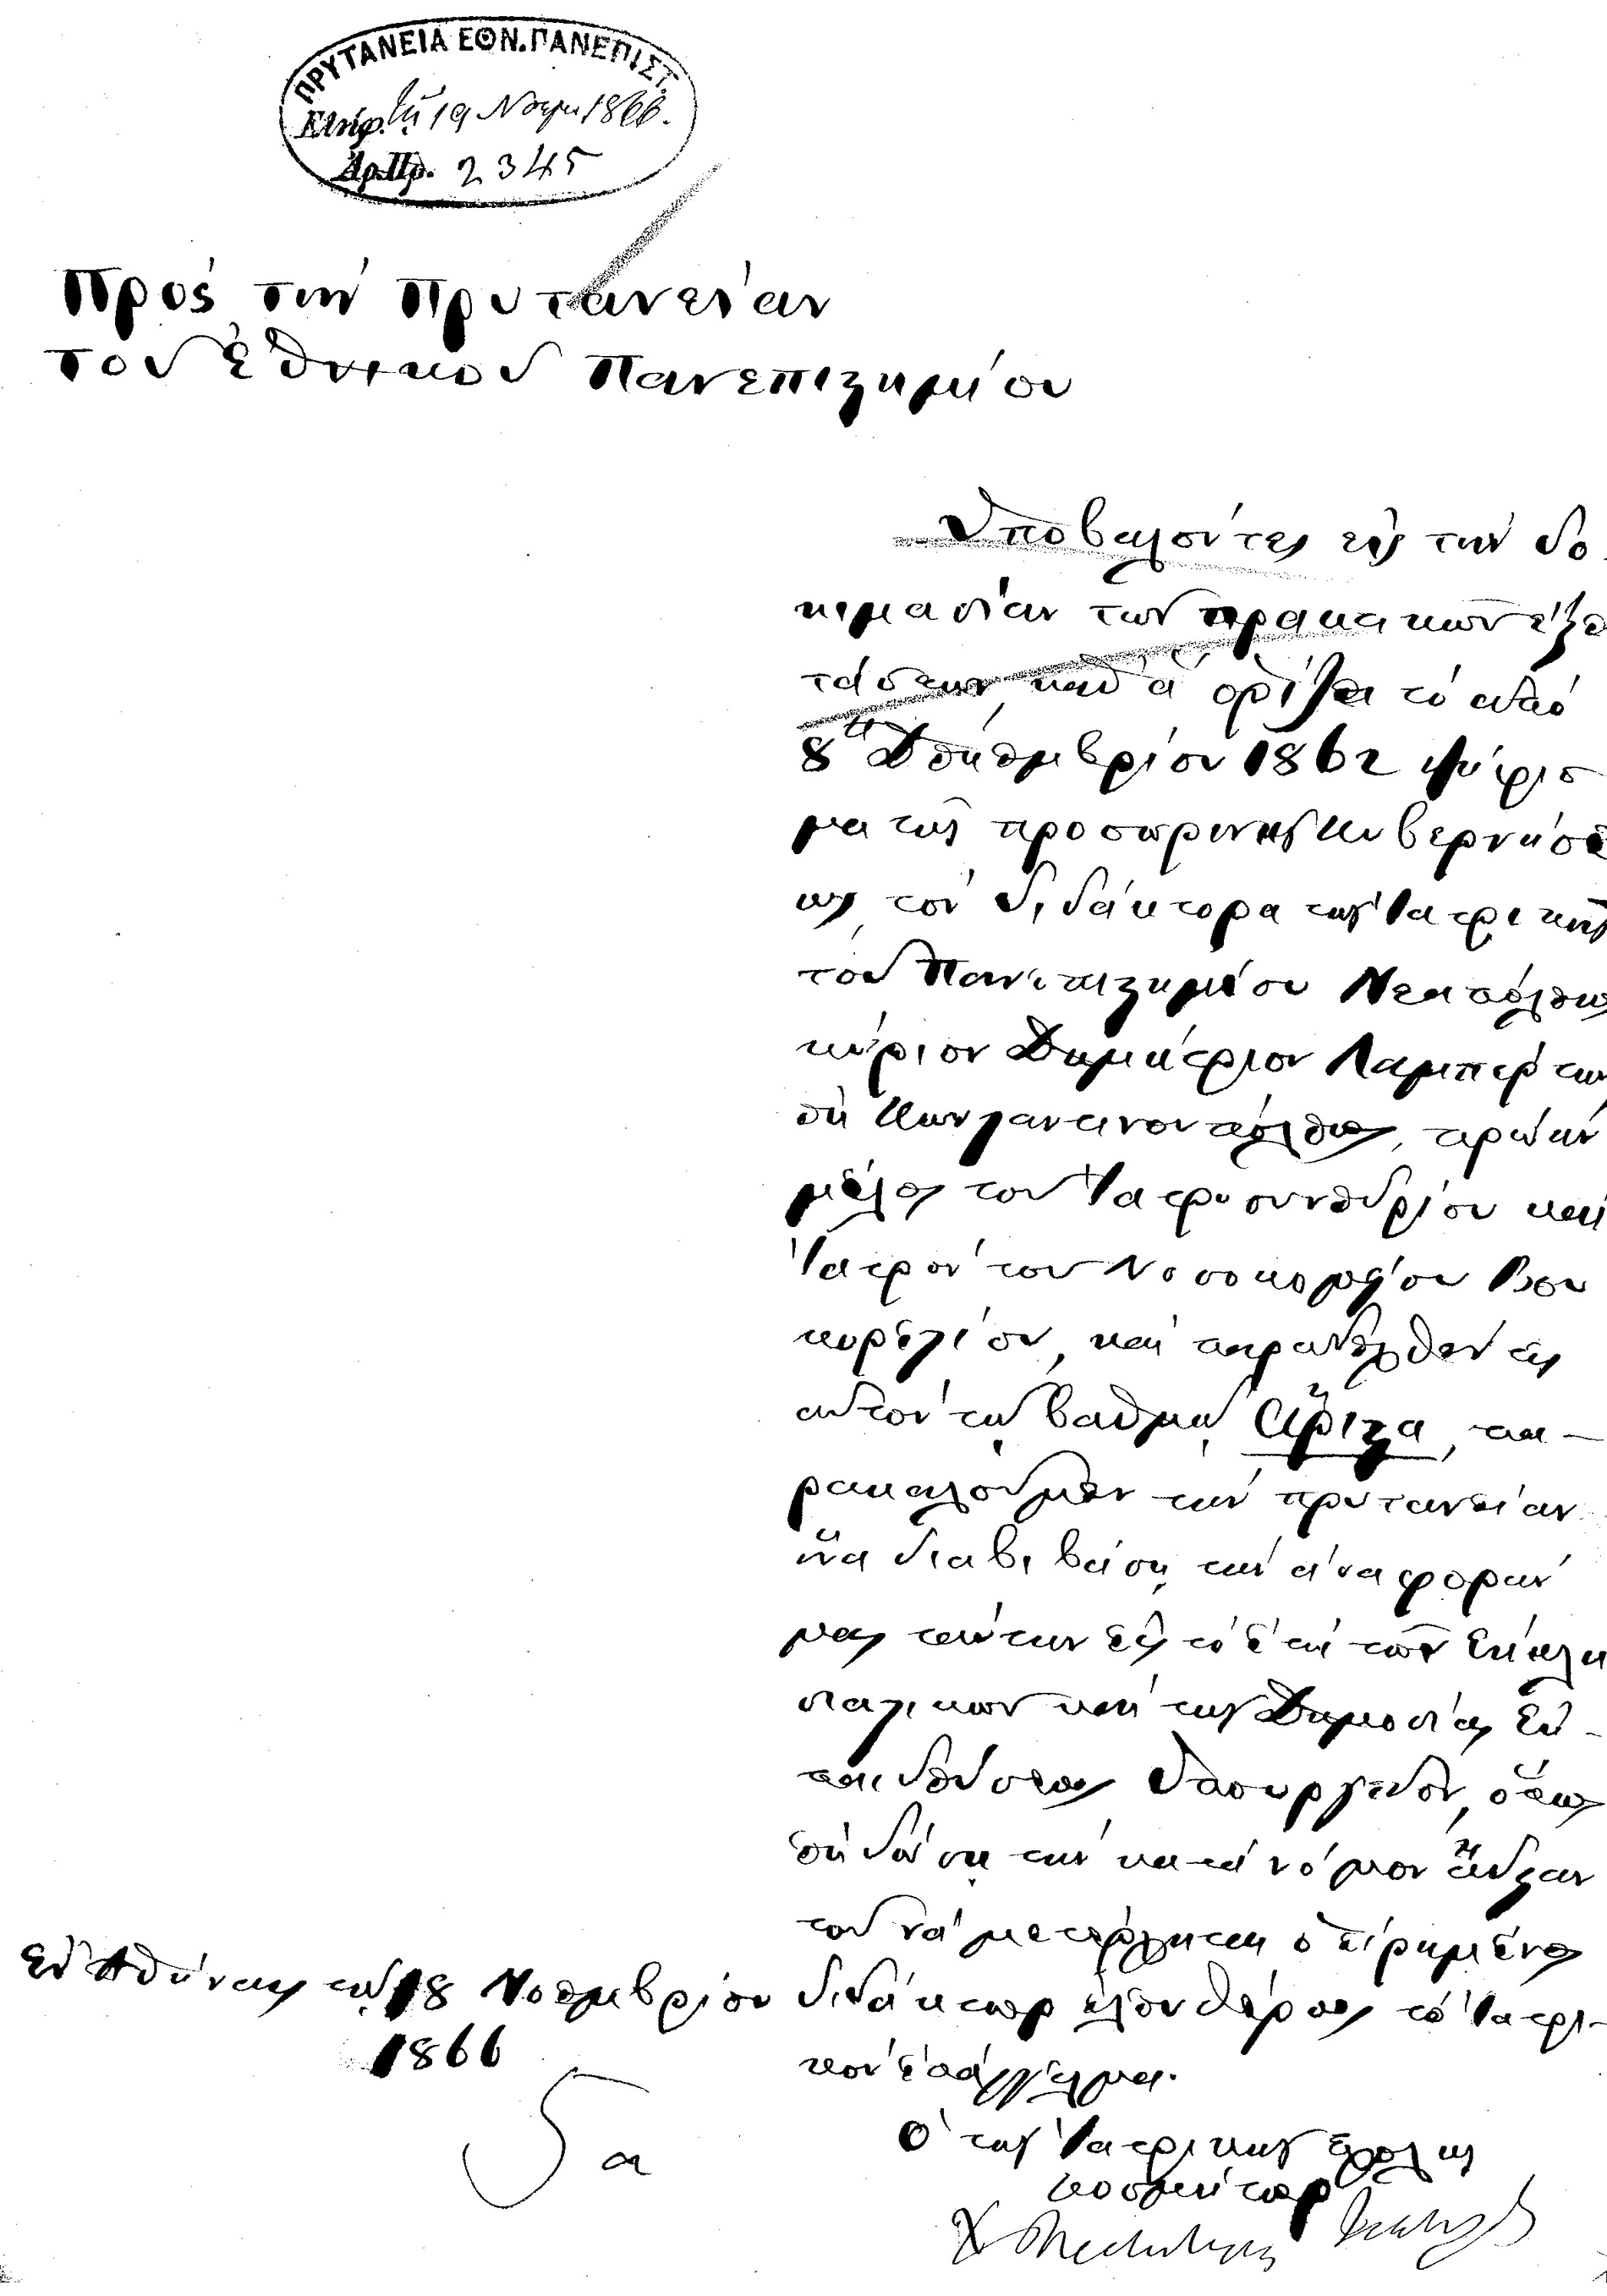 ΠΡΥΤΑΝΕΙΑ ΕΘΝ. ΠΑΝΕΠΙΣΤ.
Ἐλήφ. τῇ 19 Νοεμ 1866.
Ἀρ.Πρ. 2345
Πρὸς τὴν Πρυτανείαν
τοῦ Ἐθνικοῦ Πανεπιστημίου
Ὑποβαλόντες εἰς τὴν δο
κιμασίαν τῶν πρακτικῶν ἐξε
τάσεων, καθ' ἃ ὁρίζει τὸ ἀπὸ
8 Δεκεμβρίου 1862 ψήφισ
μα τῆς προσωρινῆς Κυβερνήσε
ως, τὸν διδάκτορα τῆς Ἰατρικῆς
τοῦ Πανεπιστημίου Νεαπόλεως
κύριον Δημήτριον Λαμπερ
ἐκ Κωνσταντινουπόλεως, πρώην
μέλος τοῦ Ἰατροσυνεδρίου καὶ
Ἰατρὸν τοῦ Νοσοκομείου Βου
κορεστίου, καὶ
αὐτὸν τῷ βαθμῷ Ἄριστα, πα-
ρακαλοῦμεν τὴν πρυτανείαν
ἵνα διαβιβάσῃ τὴν ἀναφοράν
μας ταύτην εἰς τὸ ἐπὶ τῶν Ἐκκλη
σιαστικῶν καὶ τῆς Δημοσίας Ἐκ-
παιδεύσεως Ὑπουργεῖον, ὅπως
ἐκδώσῃ τὴν κατὰ νόμον ἄδειαν
τοῦ νὰ μετέρχηται ὁ εἰρημένος
διδάκτωρ ἐλευθέρως τὸ Ἰατρι-
κὸν ἐπάγγελμα.
Ἐν Ἀθήναις τῇ 18 Νοεμβρίου
1866
Ὁ τῆς Ἰατρικῆς σχολῆς
κοσμήτωρ